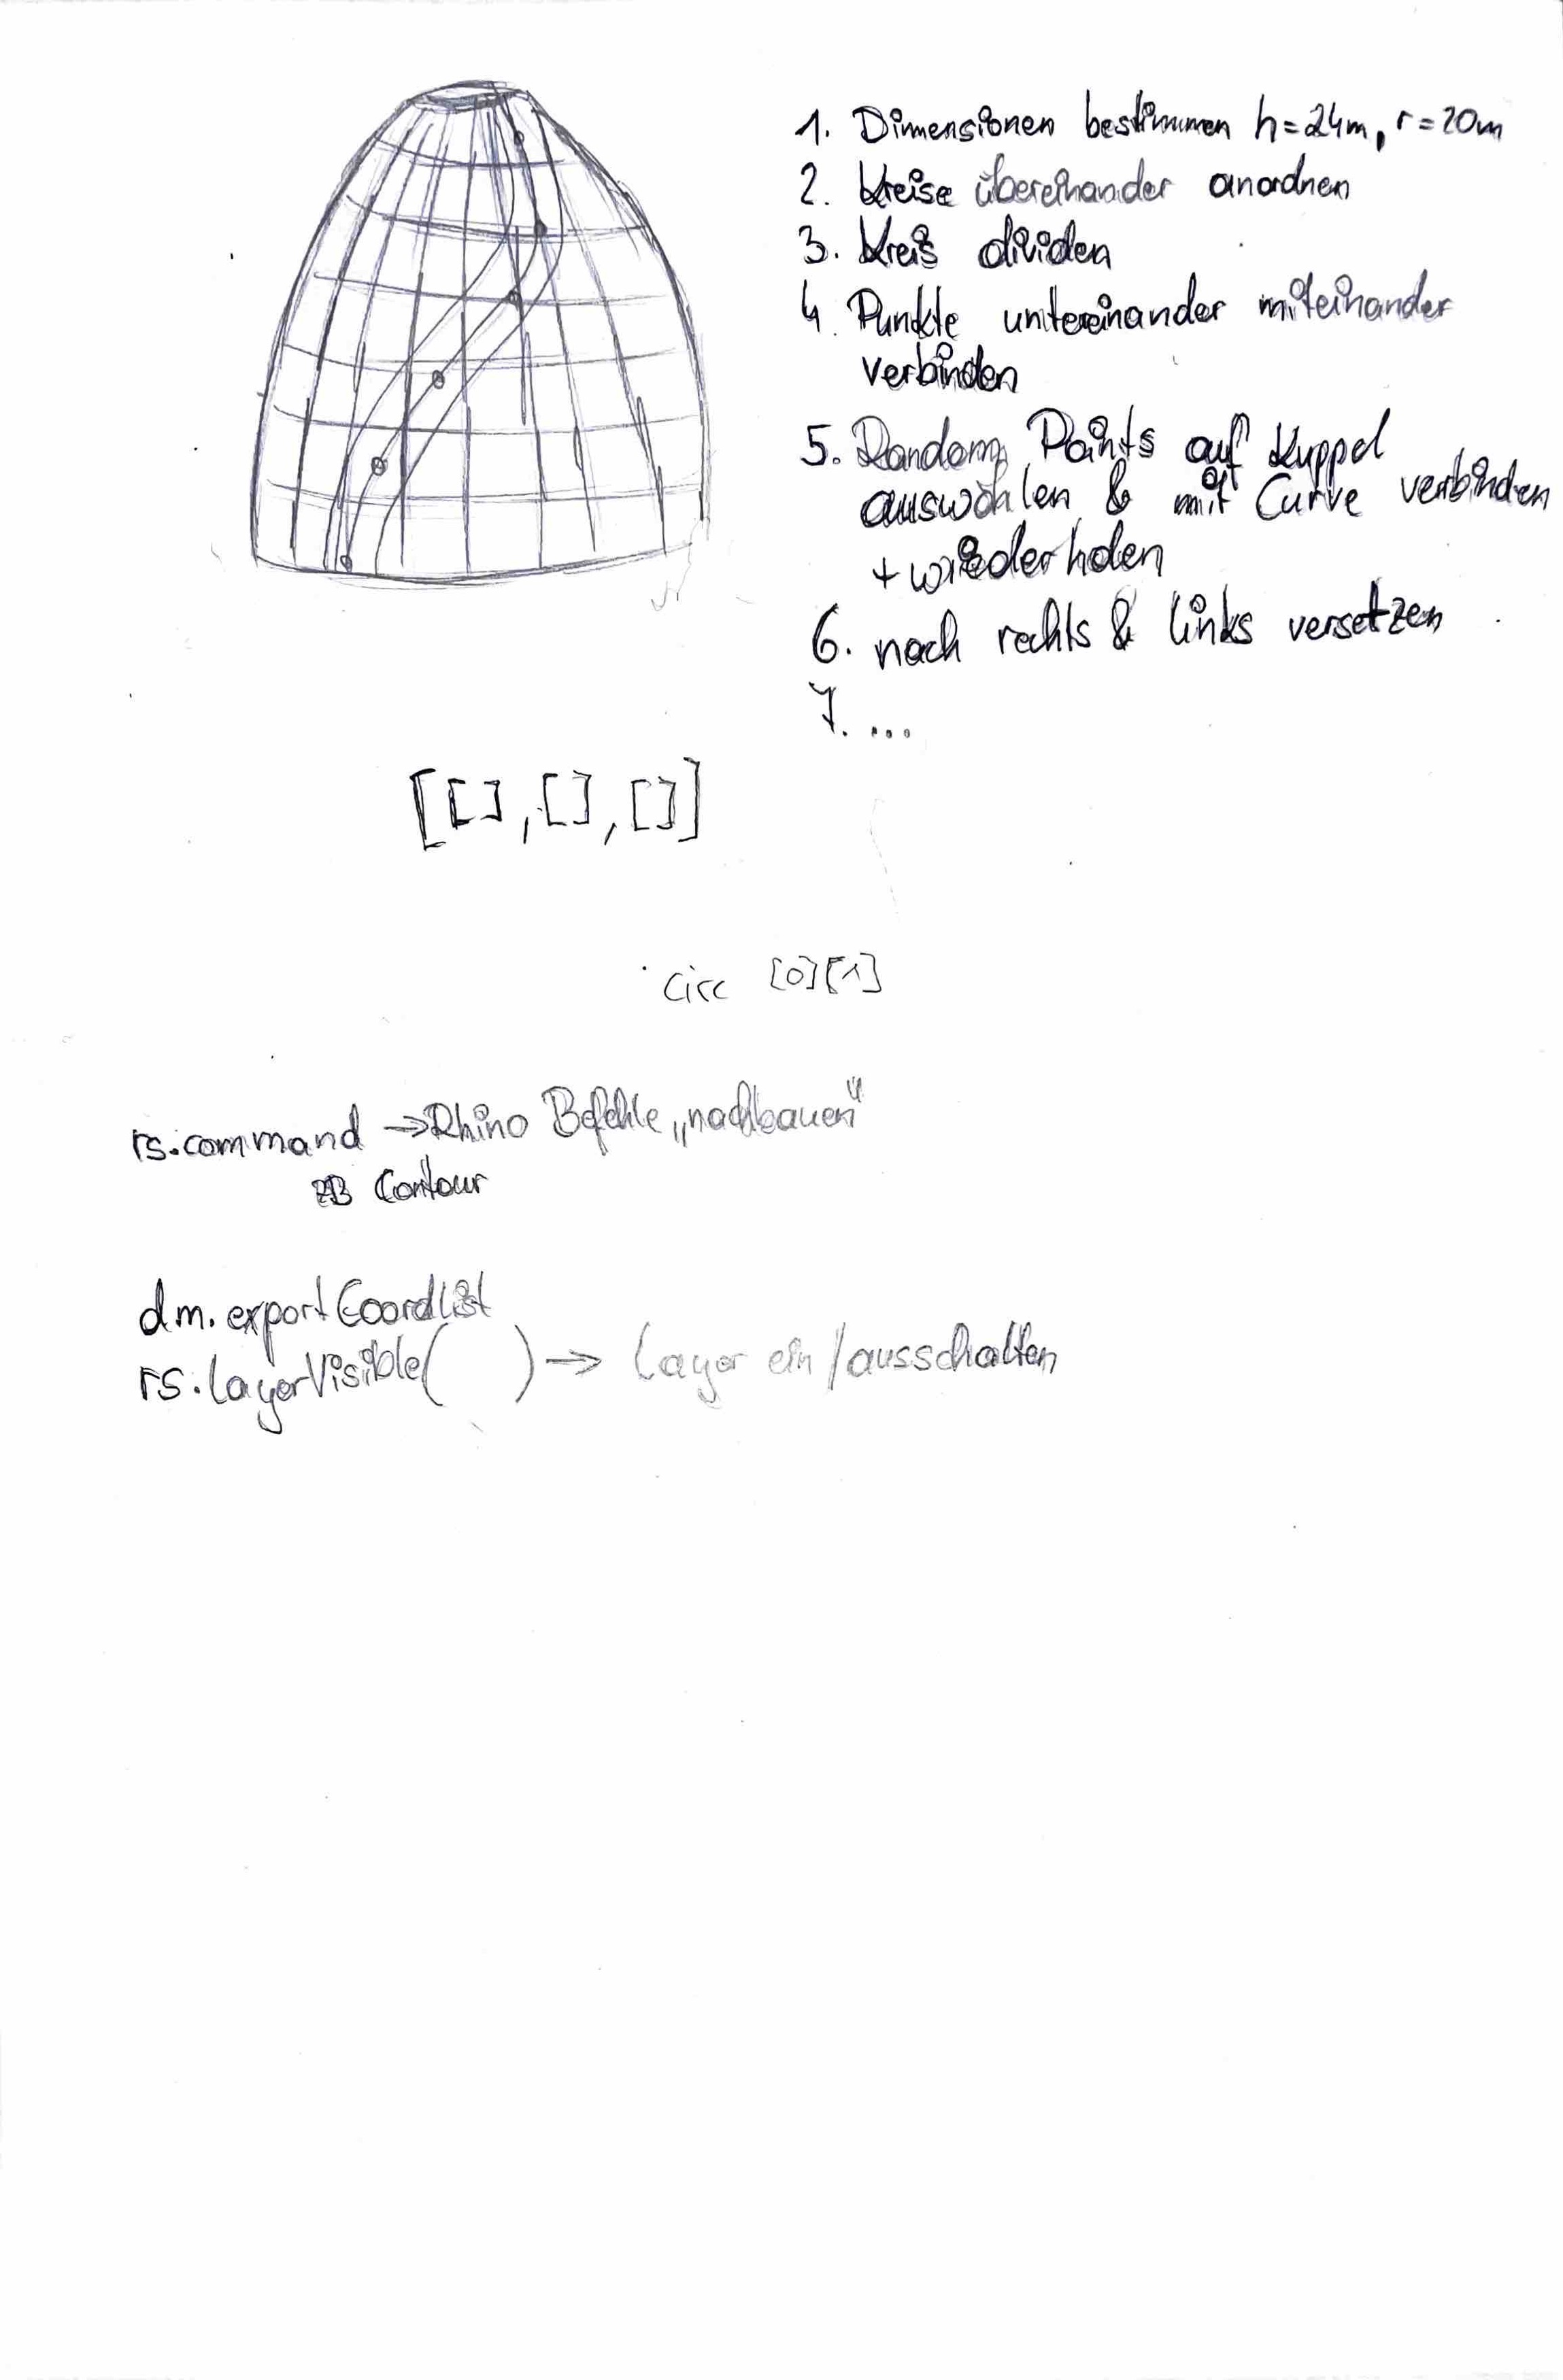 1. Dimensionen bestimmen h=24m, r=20m
2. Kreise übereinander anordnen
3. Kreis dividen
4. Punkte untereinander miteinander
verbinden
5. Random Points auf Kuppel
auswählen & mit Curve verbinden
+ wiederholen
6. nach rechts & links versetzen
7. ...
[[],[],[]]
circ [0][1]
rs.command → Rhino Befehle „nachbauen“
ZB Contour
dm.exportCoordList
rs.layerVisible( ) → Layer ein/ausschalten